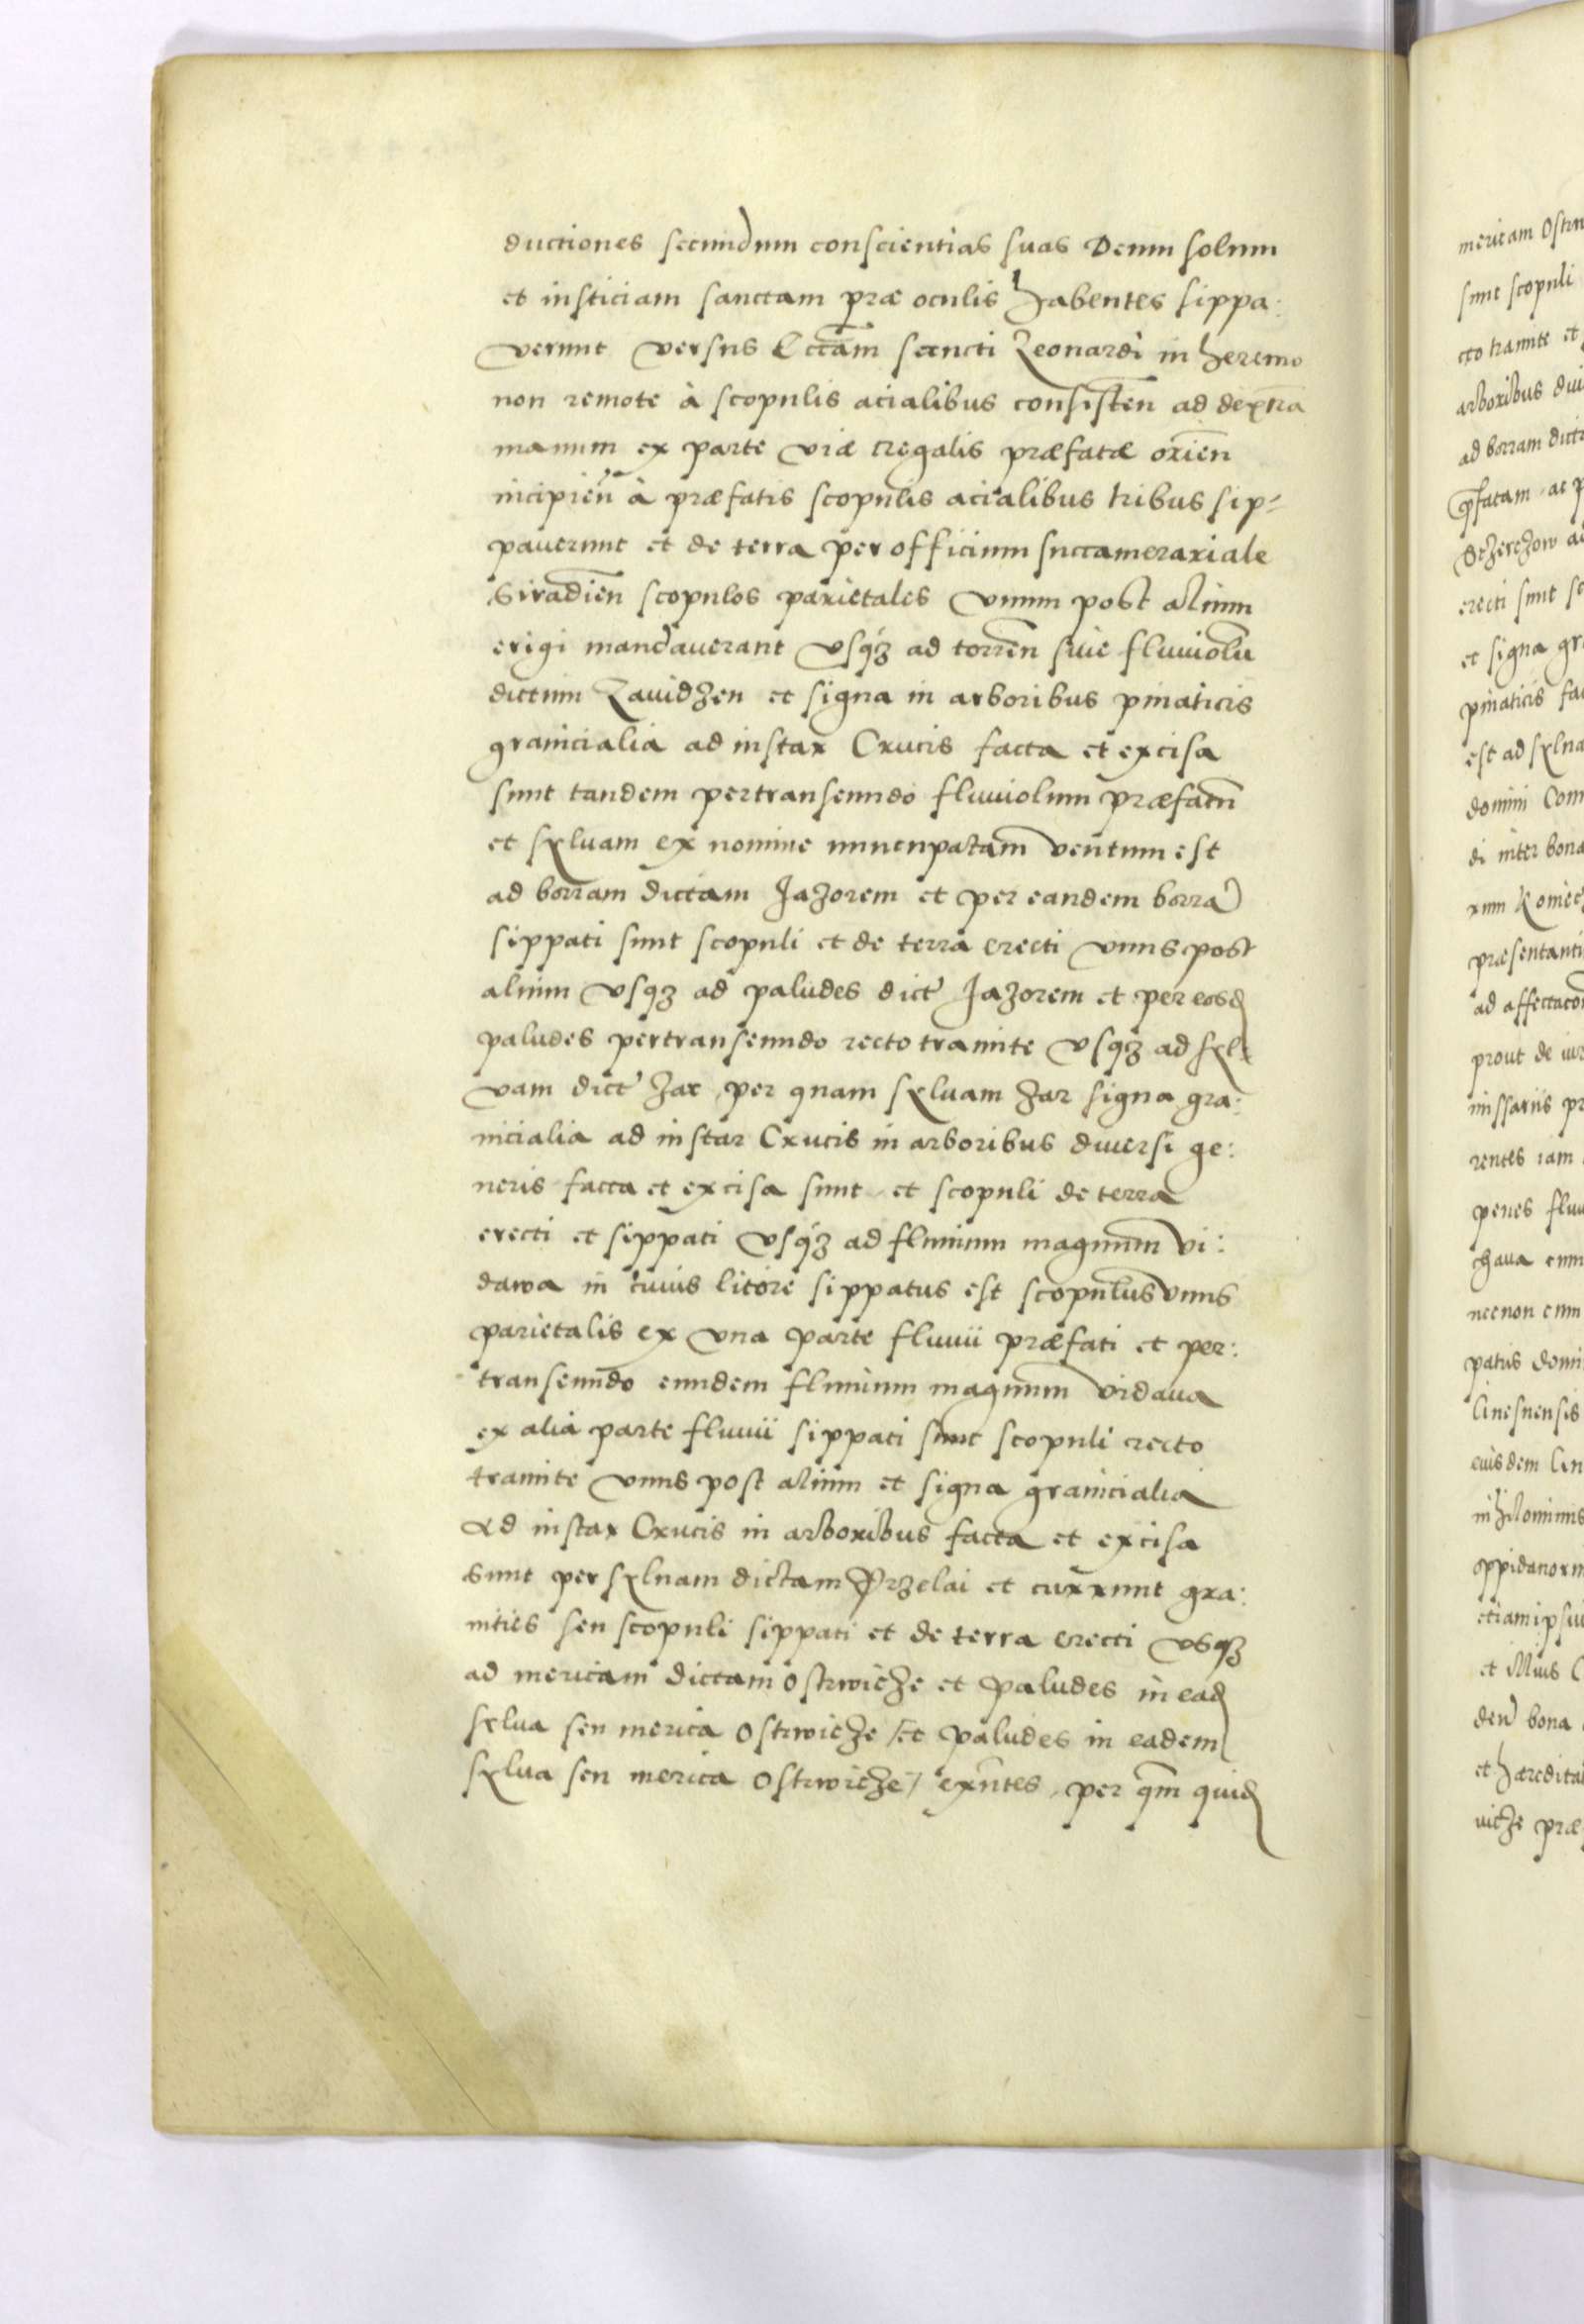 ductiones secundum conscientias suas Deum solum
et iusticiam sanctam præ oculis habentes sippa:
verunt versus Eccãm sancti Leonardi in heremo
non remote à scopulis acialibus consisteñ ad dextrã
manum ex parte viæ regalis præfatæ orieñ
incipieñ à præfatis scopulis acialibus tribus sip-
pauerunt et de terra per officium succamerariale
Siradieñ scopulos parietales vnum post alium
erigi mandauerant vsq3 ad torreñ siue fluuiolũ
dictum Lauidzen et signa in arboribus pinaticis
granicialia ad instar Crucis facta et excisa
sunt tandem pertranseundo fluuiolum præfatũ
et syluam ex nomine nuncupatam ventum est
ad borram dictam Jazorem et per eandem borrã
sippati sunt scopuli et de terra erecti vnus post
alium vsq3 ad paludes dict Jazorem et per eosd
paludes pertranseundo recto tramite vsq3 ad syl-
vam dict Zar per quam syluam Zar signa gra:
nicialia ad instar Crucis in arboribus diuersi ge:
neris facta et excisa sunt et scopuli de terra
erecti et sippati vsq3 ad fluuium magnum Vi:
dawa in cuius litore sippatus est scopulus vnus
parietalis ex vna parte fluuii præfati et per:
transeundo eundem fluuium magnum vidaua
ex alia parte fluuii sippati sunt scopuli recto
tramite vnus post alium et signa granicialia
ad instar Crucis in arboribus facta et excisa
sunt per syluam dictam Przelai et currunt gra:
nities seu scopuli sippati et de terra erecti vsq3
ad mericam dictam Ostrwicze et paludes in ead
sylua seu merica Ostrwicze /et paludes in eadem
sylua seu merica Ostrwicze/ exñtes per qm̃ quid
mericam Ostrw
sunt scopuli
cto tramite et
arboribus diu
ad borram dict
p̃fatam ac p
erecti sunt sc
et signa gr
pinaticis fac
est ad sylua
domini Com
di inter bona
præsentanti
prout de iur
missariis pr
rentes iam
penes fluu
necnon cum
patus domi
Gnesnensis
eiusdem Gn
nihilominus
oppidanorum
etiam ipsiu
et illius
bona
et hæredita
præ